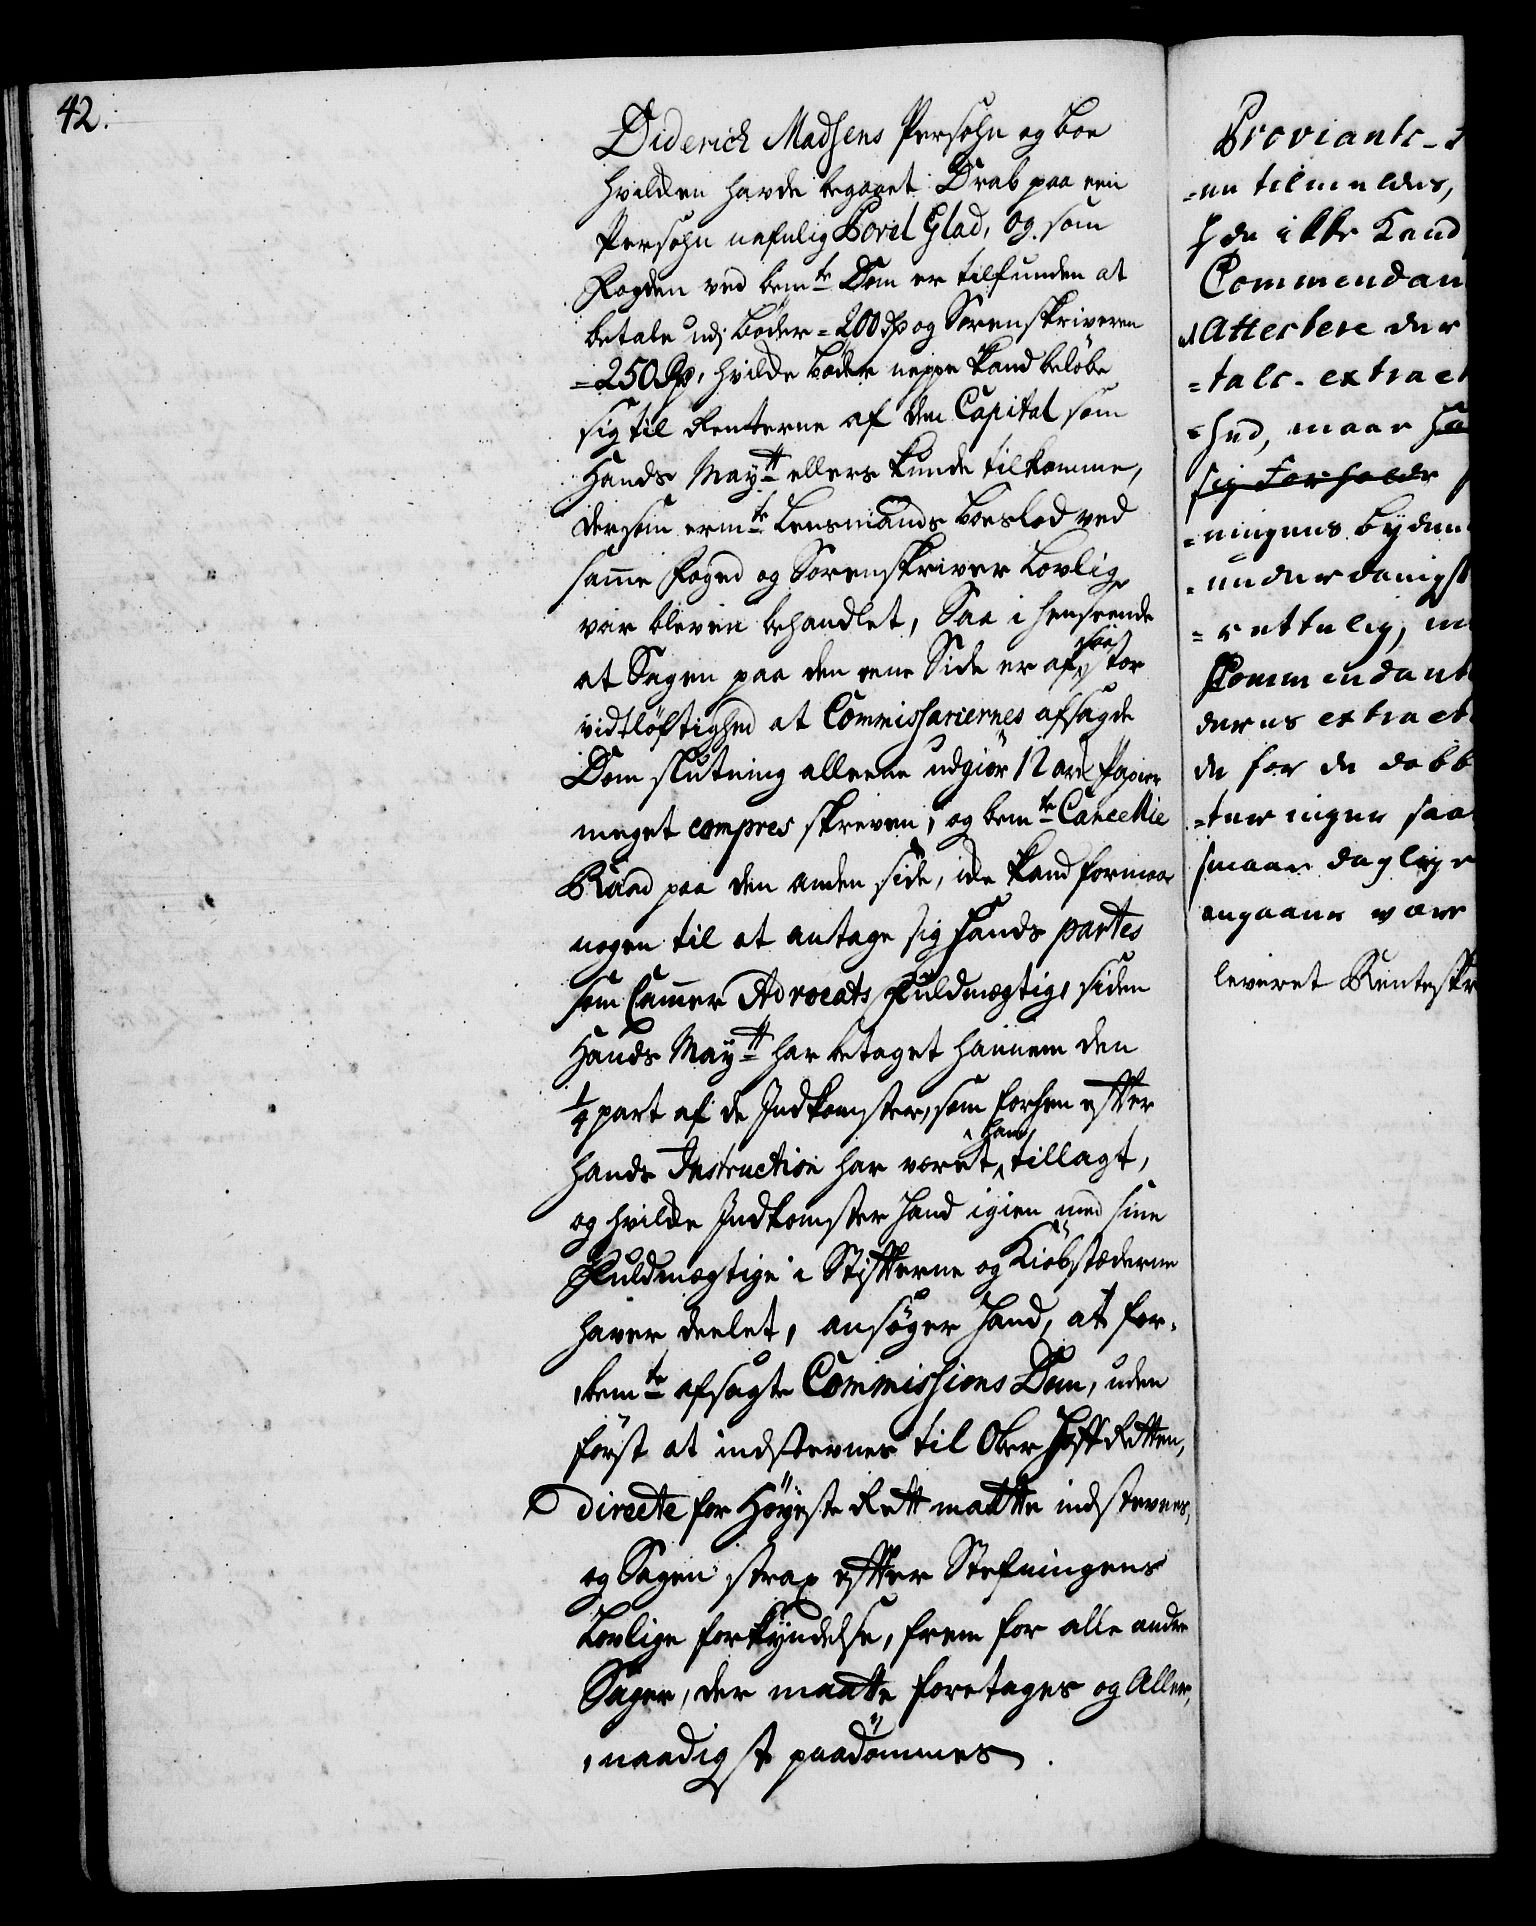 42.
Diderich Madsens Persohn og boe
hvilken havde begaaet Drab paa een
Persohn nafnlig Povel Glad, og som
Fogden ved bemte Dom er tilfunden at
betale udj Bøder = 200 Rd og Sorenskriveren
= 250 Rd, hvilke bøder neppe kand beløbe
sig til Renterne af den Capital som
Hands Maytt ellers kunde tilkomme,
dersom ermte Lensmands boeslod ved
samme Foged og Sorenskriver Lovlig
var bleven behandlet, Saa i henseende
at Sagen paa den eene Side er af saa stor
vidtløftighed at Commissariernes afsagde
Dom slutning alleene udgiør 12 ark Papier
meget compres skreven, og bemte Cancellie
Raad paa den anden side, icke kand formaae
nogen til at antage sig hands partes
som Cammer Advocats fuldmægtig, siden
Hands Maytt har betaget hannem den
1/4 part af de Indkomster, som forhen efter
hands Instruction har været ham tillagt,
og hvilke Indkomster hand igien med sine
Fuldmægtige i Stifterne og Kiøbstæderne
haver deelet, ansøger hand, at for-
bemte afsagte Commissions Dom, uden
først at indstevnes til Ober Hoff Retten,
directe for Høyeste Rett maatte indstevnes,
og Sagen strax efter Stefningens
Lovlige forkyndelse, frem for alle andre
Sager, der maatte foretages og Aller-
naadigst paadømmes.
Proviants-
-en tilmeldes,
icke kand
Commendan
Attestere der
=tals-extract
=hed, maae
sig forholde
=ningens
=underdanigst
=rettelig,
Commendant
deres extract
de for de dobb
=teringer saa
smaae daglige
angaaende være
leveret Renteskr